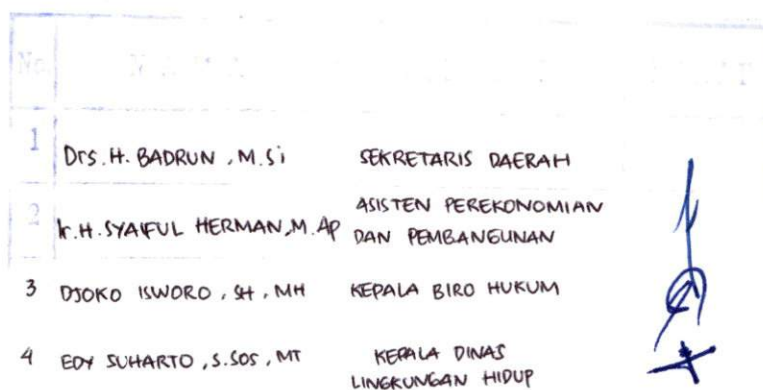 No N A M A
1 Drs. H. BADRUN, M.Si SEKRETARIS DAERAH
2 Ir. H. SYAIFUL HERMAN, M.AP ASISTEN PEREKONOMIAN
DAN PEMBANGUNAN
3 DJOKO ISWORO, SH, MH KEPALA BIRO HUKUM
4 EDY SUHARTO, S.SOS, MT KEPALA DINAS
LINGKUNGAN HIDUP